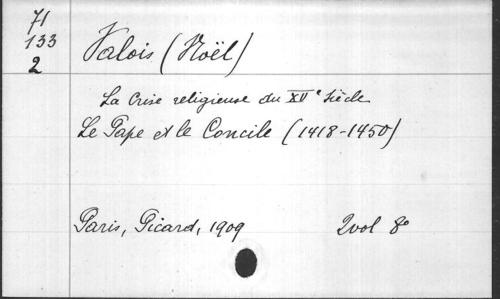 71
133
2
Valois (Noël)
La Crise religieuse du XVe Siècle
Le Pape et le Concile (1418-1450)
Paris, Picard, 1909 2 vol 8º